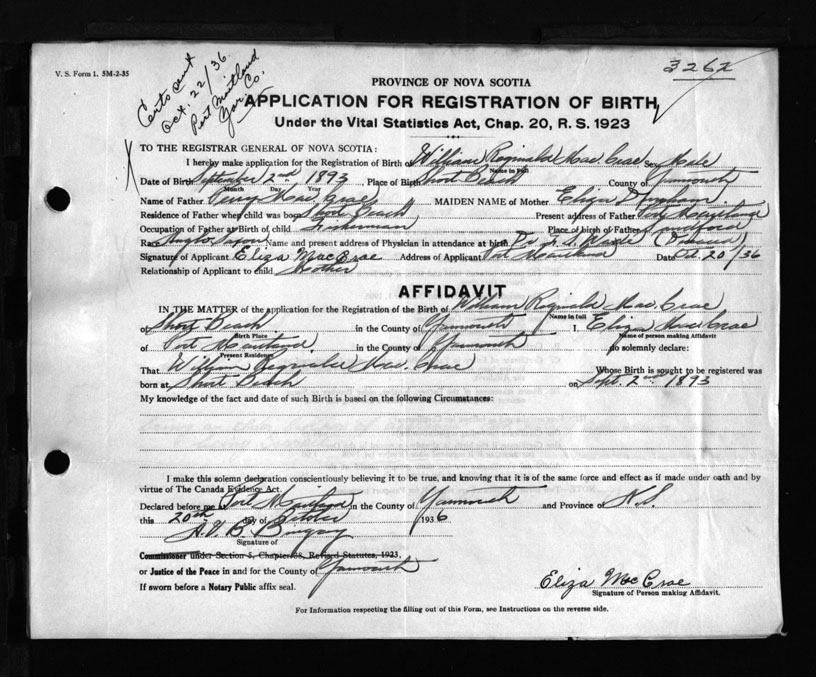 V. S. Form 1. 5M-2-35
Certs sent
Oct. 22/36
Port Maitland
Yar. Co.
3262
PROVINCE OF NOVA SCOTIA
APPLICATION FOR REGISTRATION OF BIRTH
Under the Vital Statistics Act, Chap. 20, R. S. 1923
TO THE REGISTRAR GENERAL OF NOVA SCOTIA:
I hereby make application for the Registration of Birth of William Reginald Mac Crae Sex Male
Name in Full
Date of Birth September 2nd 1893 Place of Birth Short Beach County of Yarmouth
Month Day Year
Name of Father Percy Mac Crae MAIDEN NAME of Mother Eliza
Residence of Father when child was born Short Beach Present address of Father Port Maitland
Occupation of Father at Birth of child Fisherman Place of birth of Father Sandford
Race Anglo Saxon Name and present address of Physician in attendance at birth Dr.
Signature of Applicant Eliza MacCrae Address of Applicant Port Maitland Date Oct. 20/36
Relationship of Applicant to child Mother
AFFIDAVIT
IN THE MATTER of the application for the Registration of the Birth of William Reginald Mac Crae
Name in full
of Short Beach in the County of Yarmouth I, Eliza Mac Crae
Birth Place Name of person making Affidavit
of Port Maitland in the County of Yarmouth do solemnly declare:
Present Residence
That William Reginald Mac Crae Whose Birth is sought to be registered was
born at Short Beach on Sept. 2nd 1893
My knowledge of the fact and date of such Birth is based on the following Circumstances:
I make this solemn declaration conscientiously believing it to be true, and knowing that it is of the same force and effect as if made under oath and by
virtue of The Canada Evidence Act.
Declared before me Port Maitland in the County of Yarmouth and Province of N.S.
this 20th day of October 1936
Signature of
Commissioner under Section 5, Chapter 38, Revised Statutes, 1923.
or Justice of the Peace in and for the County of Yarmouth
If sworn before a Notary Public affix seal.
Eliza MacCrae
Signature of Person making Affidavit.
For Information respecting the filling out of this Form, see Instructions on the reverse side.